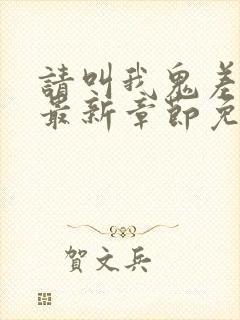 請叫我鬼差
最新章節免
賀文兵